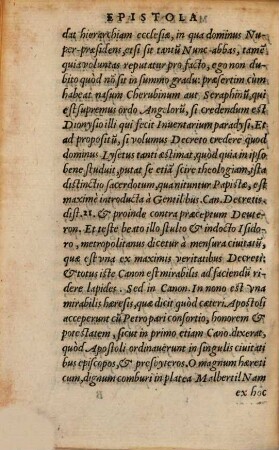 EPISTOLA
dat hierarchiam ecclesiæ, in qua dominus Nu-
per-præsidens, etsi sit tantũ Nunc-abbas, tamẽ
quia voluntas reputatur pro facto, ego non du-
bito quòd nõ sit in summo gradu: præsertim cum
habeat nasum Cherubinum aut Seraphinũ, qui
est supremus ordo Angelorũ, si credendum est
Dionysio illi qui fecit Inuentarium paradysi. Et
ad propositũ, si volumus Decreto credere quod
dominus Lysetus tanti æstimat, quòd quia in ipso
bene studuit, putat se etiã scire theologiam, ista
distinctio sacerdotum, qua nituntur Papistæ, est
maximè introducta à Gentilibus. Can. Decretis
dist. 21. & proinde contra præceptum Deute-
ron. Et teste beato illo stulto & indocto Isido-
ro, metropolitanus dicetur à mensura ciuitatũ,
quæ est vna ex maximis veritatibus Decreti:
& totus iste Canon est mirabilis ad faciendũ ri-
dere lapides. Sed in Canon. In nouo est vna
mirabilis hæresis, quæ dicit quòd cæteri Apostoli
acceperunt cũ Petro pari consortio, honorem &
potestatem, sicut in primo etiam Cano. dixerat,
quòd Apostoli ordinauerunt in singulis ciuitati
bus episcopos, & presbyteros. O magnum hæreti
cum, dignum comburi in platea Malberti! Nam
ex hoc